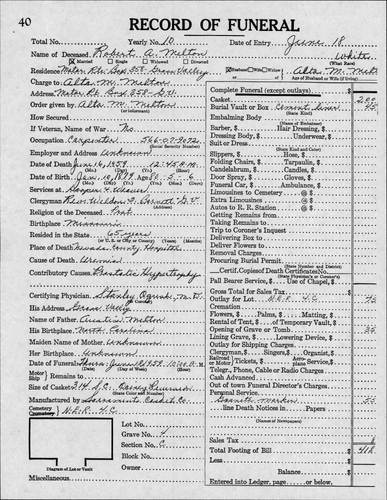 40
RECORD OF FUNERAL
Total No. Yearly No. 10 Date of Entry June 18
Name of Deceased Robert A. Melton White
Married Single Widowed Divorced (What Race)
Residence Motor Rte Box 358 Grass Valley Husband Wife or Alta M.
Charge to Alta M. Melton Age of Husband or Wife (if living)
Address Motor Rt. Box 358 - G.V.
Order given by Alta M. Melton
How Secured
If Veteran, Name of War No
Occupation Carpenter
(Social Security Number)
Employer and Address Unknown
Date of Death June 16, 1959 12:45 P.M.
Date of Birth Jan. 10, 1879 Age 80 - 5 - 6
(Years) (Months) (Days)
Services at Hooper & Weaver
Clergyman Rev. Weldon
(Address)
Religion of the Deceased Prot.
Birthplace Missouri
Resided in the State 65 years
(or U. S. or City or County) (Years) (Months)
Place of Death Nevada County Hospital
Cause of Death Uremia
Contributory Causes Prostatic Hypertrophy
Certifying Physician Stanley M.D.
His Address Grass Valley
Name of Father Melton
His Birthplace North Carolina
Maiden Name of Mother Unknown
Her Birthplace Unknown
Date of Funeral Thurs. June 18 1959 10:00 A.M.
(Day of Week) (Hour)
Motor Ship Remains to
Size of Casket
(State Color and Number)
Manufactured by Sacramento Casket Co.
Cemetery Crematory N.E.R. 4.C.
Lot No.
Grave No. 4
Section No. C
Block No.
Owner
Diagram of Lot or Vault
Miscellaneous
Complete Funeral (except outlays)
Casket
Burial Vault or Box Cement liner 45
(State Kind)
Embalming Body
(Name of Embalmer)
Barber, $ Hair Dressing, $
Dressing Body, $ Underwear, $
Suit or Dress
(State Kind and Color)
Slippers, $ Hose, $
Folding Chairs, $ Tarpaulin, $
Candelabrum, $ Candles, $
Door Spray, $ Gloves, $
Funeral Car, $ Ambulance, $
Limousines to Cemetery @ $
Extra Limousines @ $
Autos to R. R. Station @ $
Getting Remains from
Taking Remains to
Trip to Coroner's Inquest
Delivering Box to
Deliver Flowers to
Removal Charges
Procuring Burial Permit
(State Number and District)
Certif. Copies of Death Certificates No.
(State Physician's or Coroner's)
Pall Bearer Service, $ Use of Chapel, $
Gross Total for Sales Tax
Outlay for Lot N.E.R. 4.C.
Cremation
Flowers, $ Palms, $ Matting, $
Rental of Tent, $ of Temporary Vault, $
Opening of Grave or Tomb
Lining Grave, $ Lowering Device, $
Outlay for Shipping Charges
Clergyman, $ Singers, $ Organist, $
Railroad or Motor Tickets, $ Aero-Service, $
Telegr., Phone, Cable or Radio Charges
Cash Advanced
Out of town Funeral Director's Charges
Personal Service
Marker
line Death Notices in Papers
(Names of Newspapers)
Sales Tax
Total Footing of Bill
Less
Balance
Entered into Ledger, page or below.